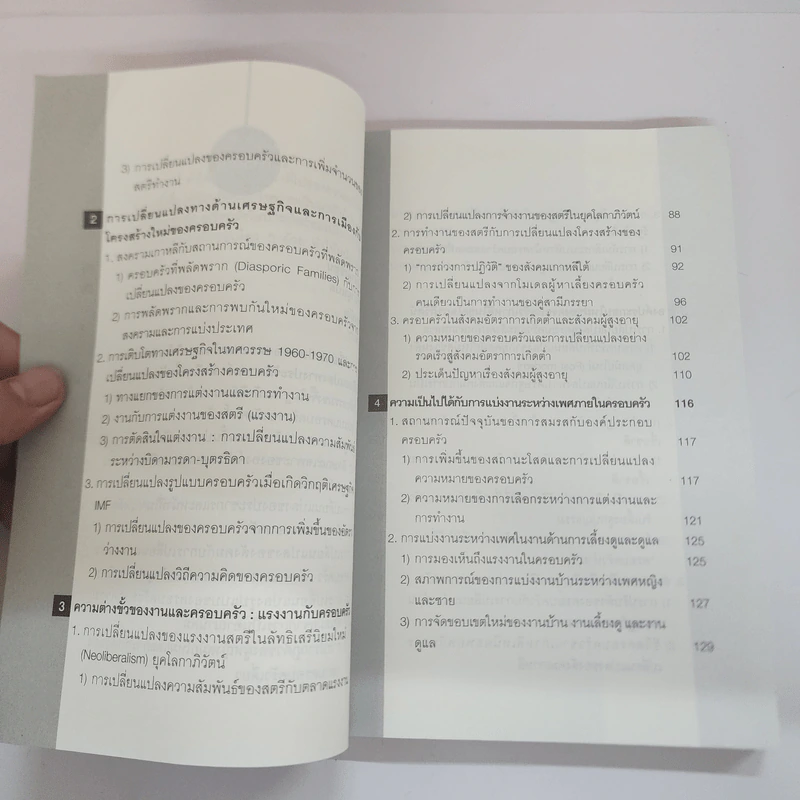 3) การเปลี่ยนแปลงของครอบครัวและการเพิ่มจำนวนของ
สตรีทำงาน
2 การเปลี่ยนแปลงทางด้านเศรษฐกิจและการเมืองกับ
โครงสร้างใหม่ของครอบครัว
1. สงครามเกาหลีกับสถานการณ์ของครอบครัวที่พลัดพราก
1) ครอบครัวที่พลัดพราก (Diasporic Families) กับการ
เปลี่ยนแปลงของครอบครัว
2) การพลัดพรากและการพบกันใหม่ของครอบครัวจาก
สงครามและการแบ่งประเทศ
2. การเติบโตทางเศรษฐกิจในทศวรรษ 1960-1970 และการ
เปลี่ยนแปลงของโครงสร้างครอบครัว
1) ทางแยกของการแต่งงานและการทำงาน
2) งานกับการแต่งงานของสตรี (แรงงาน)
3) การตัดสินใจแต่งงาน : การเปลี่ยนแปลงความสัมพันธ์
ระหว่างบิดามารดา-บุตรธิดา
3. การเปลี่ยนแปลงรูปแบบครอบครัวเมื่อเกิดวิกฤติเศรษฐกิจ
IMF
1) การเปลี่ยนแปลงของครอบครัวจากการเพิ่มขึ้นของอัตรา
ว่างงาน
2) การเปลี่ยนแปลงวิถีความคิดของครอบครัว
3 ความต่างขั้วของงานและครอบครัว : แรงงานกับครอบครัว
1. การเปลี่ยนแปลงของแรงงานสตรีในลัทธิเสรีนิยมใหม่
(Neoliberalism) ยุคโลกาภิวัตน์
1) การเปลี่ยนแปลงความสัมพันธ์ของสตรีกับตลาดแรงงาน
2) การเปลี่ยนแปลงการจ้างงานของสตรีในยุคโลกาภิวัตน์ 88
2. การทำงานของสตรีกับการเปลี่ยนแปลงโครงสร้างของ
ครอบครัว 91
1) "การถ่วงการปฏิวัติ" ของสังคมเกาหลีใต้ 92
2) การเปลี่ยนแปลงจากโมเดลผู้หาเลี้ยงครอบครัว
คนเดียวเป็นการทำงานของคู่สามีภรรยา 96
3. ครอบครัวในสังคมอัตราการเกิดต่ำและสังคมผู้สูงอายุ 102
1) ความหมายของครอบครัวและการเปลี่ยนแปลงอย่าง
รวดเร็วสู่สังคมอัตราการเกิดต่ำ 102
2) ประเด็นปัญหาเรื่องสังคมผู้สูงอายุ 110
4 ความเป็นไปได้กับการแบ่งงานระหว่างเพศภายในครอบครัว 116
1. สถานการณ์ปัจจุบันของการสมรสกับองค์ประกอบ
ครอบครัว 117
1) การเพิ่มขึ้นของสถานะโสดและการเปลี่ยนแปลง
ความหมายของครอบครัว 117
2) ความหมายของการเลือกระหว่างการแต่งงานและ
การทำงาน 121
2. การแบ่งงานระหว่างเพศในงานด้านการเลี้ยงดูและดูแล 125
1) การมองเห็นถึงแรงงานในครอบครัว 125
2) สภาพการณ์ของการแบ่งงานบ้านระหว่างเพศหญิง
และชาย 127
3) การจัดขอบเขตใหม่ของงานบ้าน งานเลี้ยงดู และงาน
ดูแล 129